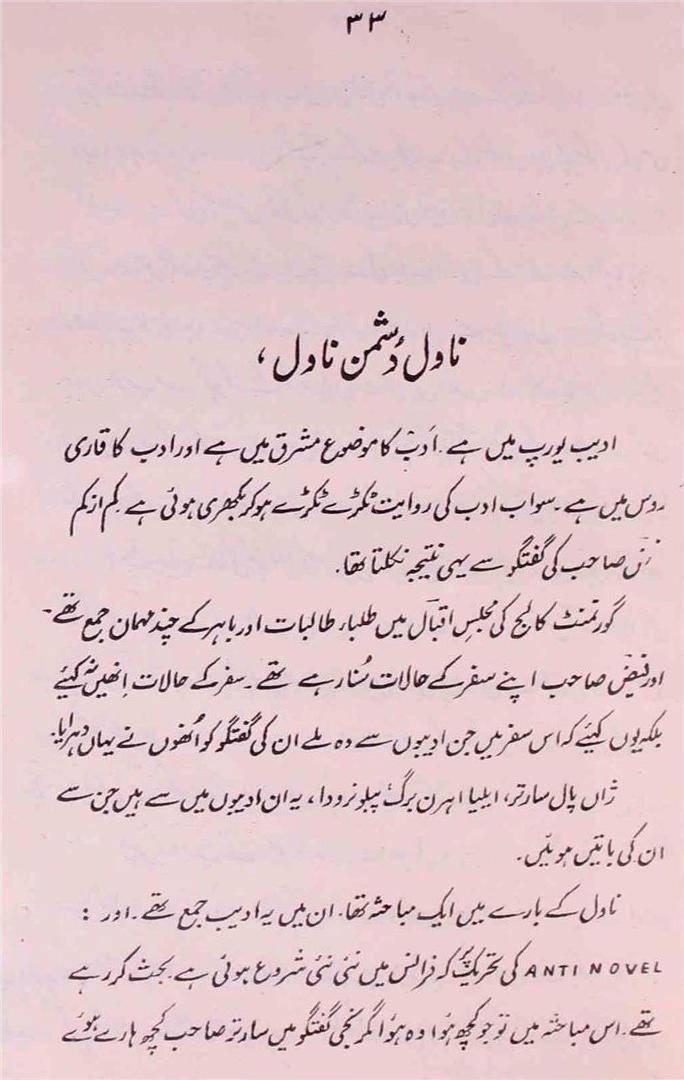 ۳۳
ناول دُشمن ناول ،
ادیب یورپ میں ہے۔ اَدب کا موضوع مشرق میں ہے اور ادب کا قاری
روس میں ہے۔ سو اب ادب کی روایت ٹکڑے ٹکڑے ہو کر بکھری ہوئی ہے کم از کم
صاحب کی گفتگو سے یہی نتیجہ نکلتا تھا۔
گورنمنٹ کالج کی مجلسِ اقبال میں طلباء طالبات اور باہر کے چند مہمان جمع تھے۔
اور فیض صاحب اپنے سفر کے حالات سُنا رہے تھے۔ سفر کے حالات اِنھیں نہ کہیئے
بلکہ یوں کہیئے کہ اس سفر میں جن ادیبوں سے وہ ملے ان کی گفتگو کو اُنھوں نے یہاں دہرایا۔
ژاں پال سارتر، ایلیا اہرن برگ پبلونرودا، یہ ان ادیبوں میں سے ہیں جن سے
ان کی باتیں ہوئیں۔
ناول کے بارے میں ایک مباحثہ تھا۔ ان میں یہ ادیب جمع تھے۔ اور :
ANTI NOVEL کی تحریک پر کہ فرانس میں نئی نئی شروع ہوئی ہے بحث کر رہے
تھے۔ اس مباحثہ میں تو جو کچھ ہُوا وہ ہُوا مگر نجی گفتگو میں سارتر صاحب کچھ ہارے ہوئے